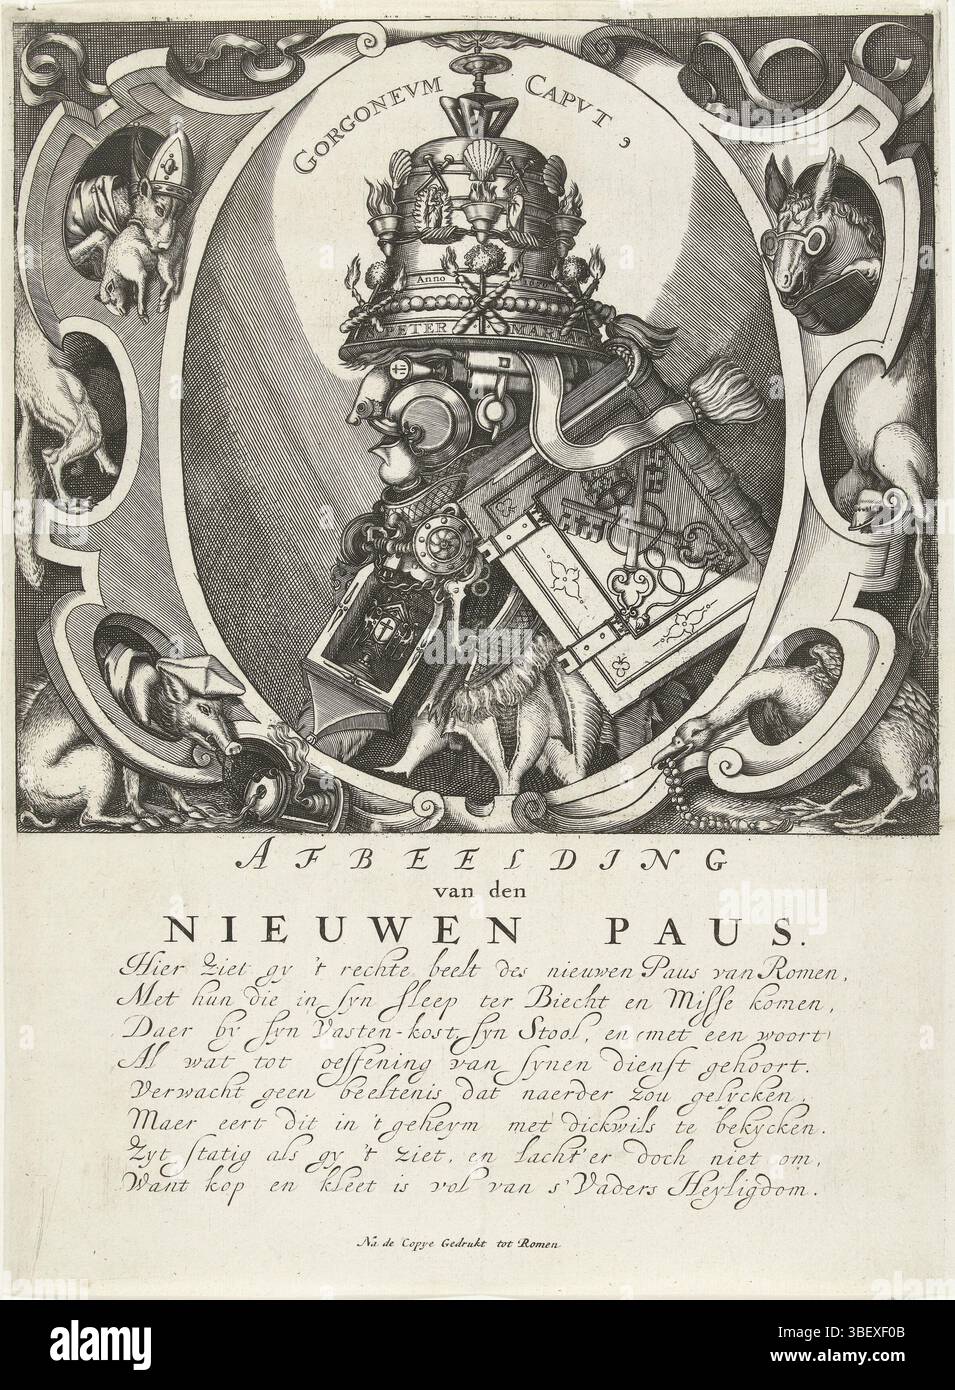 GORGONEVM CAPVT,
Anno
PETER MARI
AFBEELDING
van den
NIEUWEN PAUS.
Hier ziet gy 't rechte beelt des nieuwen Paus van Romen,
Met hun die in syn sleep ter Biecht en Misse komen,
Daer by syn Vasten-kost, syn Stool, en (met een woort)
Al wat tot oeffening van synen dienst gehoort.
Verwacht geen beeltenis dat naerder zou gelycken,
Maer eert dit in 't geheym met dickwils te bekycken.
Zyt statig als gy 't ziet, en lacht'er doch niet om,
Want kop en kleet is vol van s'Vaders Heyligdom.
Na de Copye Gedrukt tot Romen
alamy
Image ID: 3BEXF0B
www.alamy.com